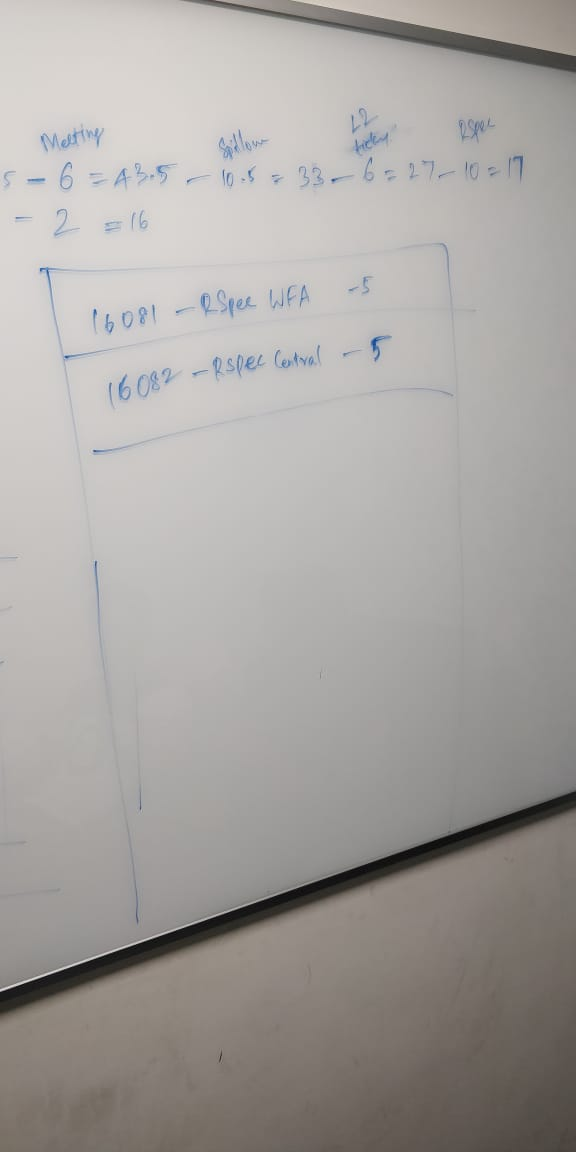 Meeting Spillover L2 ticket RSpec
5 - 6 = 43.5 - 10.5 = 33 - 6 = 27 - 10 = 17
- 2 = 16
16081 - RSpec WFA - 5
16082 - RSpec Central - 5